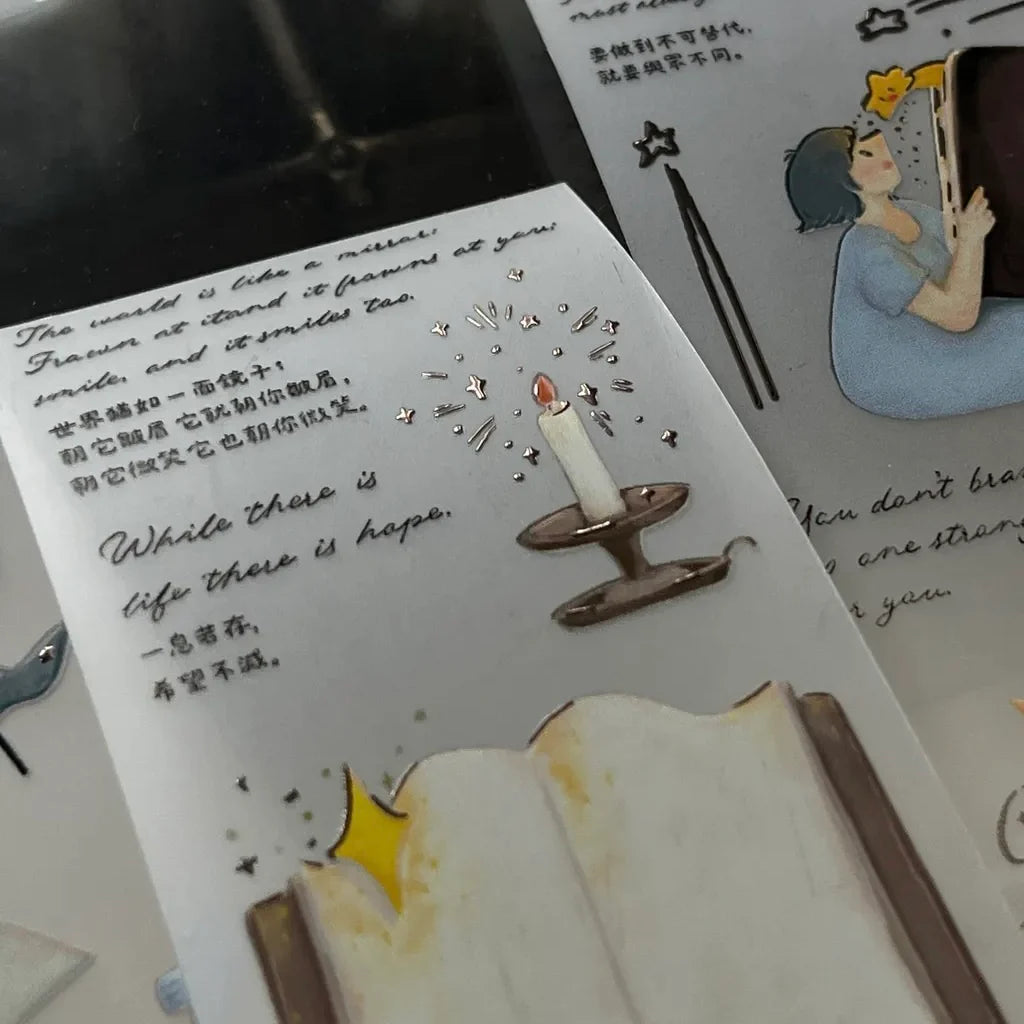 The world is like a mirror:
Frawn at itand it frowns at you:
smile, and it smiles too.
世界犹如一面镜子:
朝它皱眉它就朝你皱眉,
朝它微笑它也朝你微笑。
While there is
life there is hope.
一息若存,
希望不灭。
must always
要做到不可替代,
就要与众不同。
You don't
one strong
you.